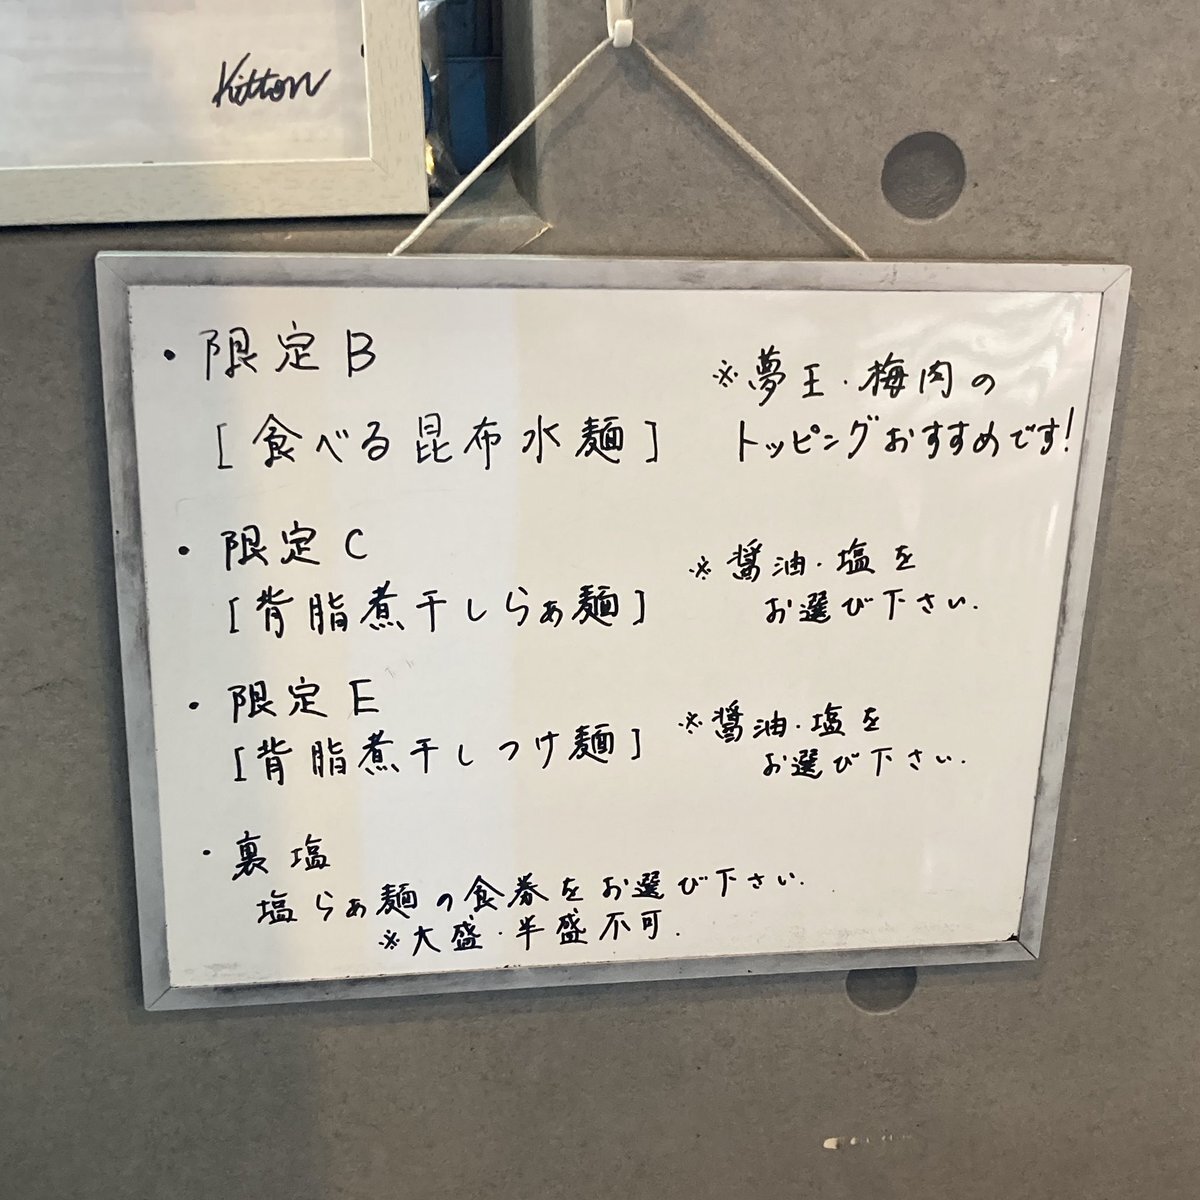 Kitton
・限定B
※夢王・梅肉の
[食べる昆布水麺]
トッピングおすすめです!
・限定C
※醤油・塩を
[背脂煮干しらぁ麺]
お選び下さい.
・限定E
※醤油・塩を
[背脂煮干しつけ麺]
お選び下さい.
・裏塩
塩らぁ麺の食券をお選び下さい.
※大盛・半盛不可.